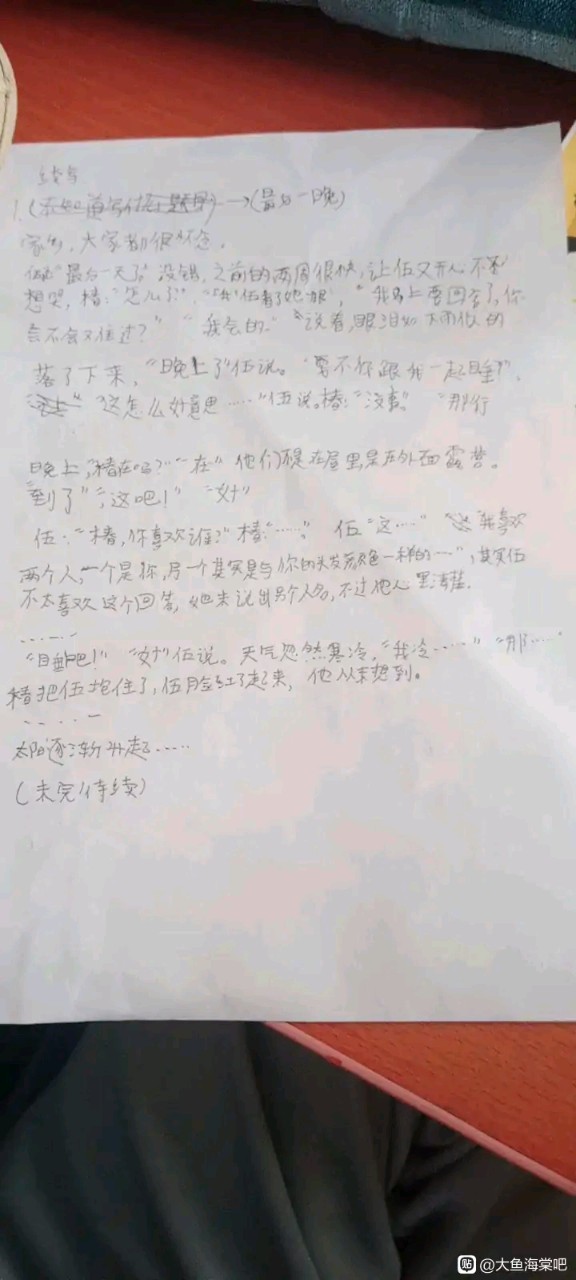 续写
1.(不知道写什么题目)→(最后一晚)
家乡,大家都很怀念。
"最后一天了"没错,之前的两周很快,让伍又开心不
想哭,椿:"怎么了",伍看了她一眼,"我马上要回去了,你
会不会又 过?" "我会的。"说着,眼泪如大雨似的
落了下来,"晚上了"伍说。"要不你跟我一起睡",
"这怎么好意思……"伍说。椿:"没事。" "那行
晚上,"椿在吗?""在"他们不是在屋里,是在外面露营。
"到了",这吧!" "好"
伍:"椿,你喜欢谁?"椿:"……" 伍"这……" "我喜欢
两个人,一个是你,另一个其实是与你的头发颜色一样的……",其实伍
不太喜欢这个回答,她未说出另个人名,不过他心里清楚。
……
"睡吧!" "好"伍说。天气忽然寒冷,"我冷……" "那……"
椿把伍抱住了,伍脸红了起来,他从未想到。
……
太阳逐渐升起……
(未完待续)
贴 @大鱼海棠吧